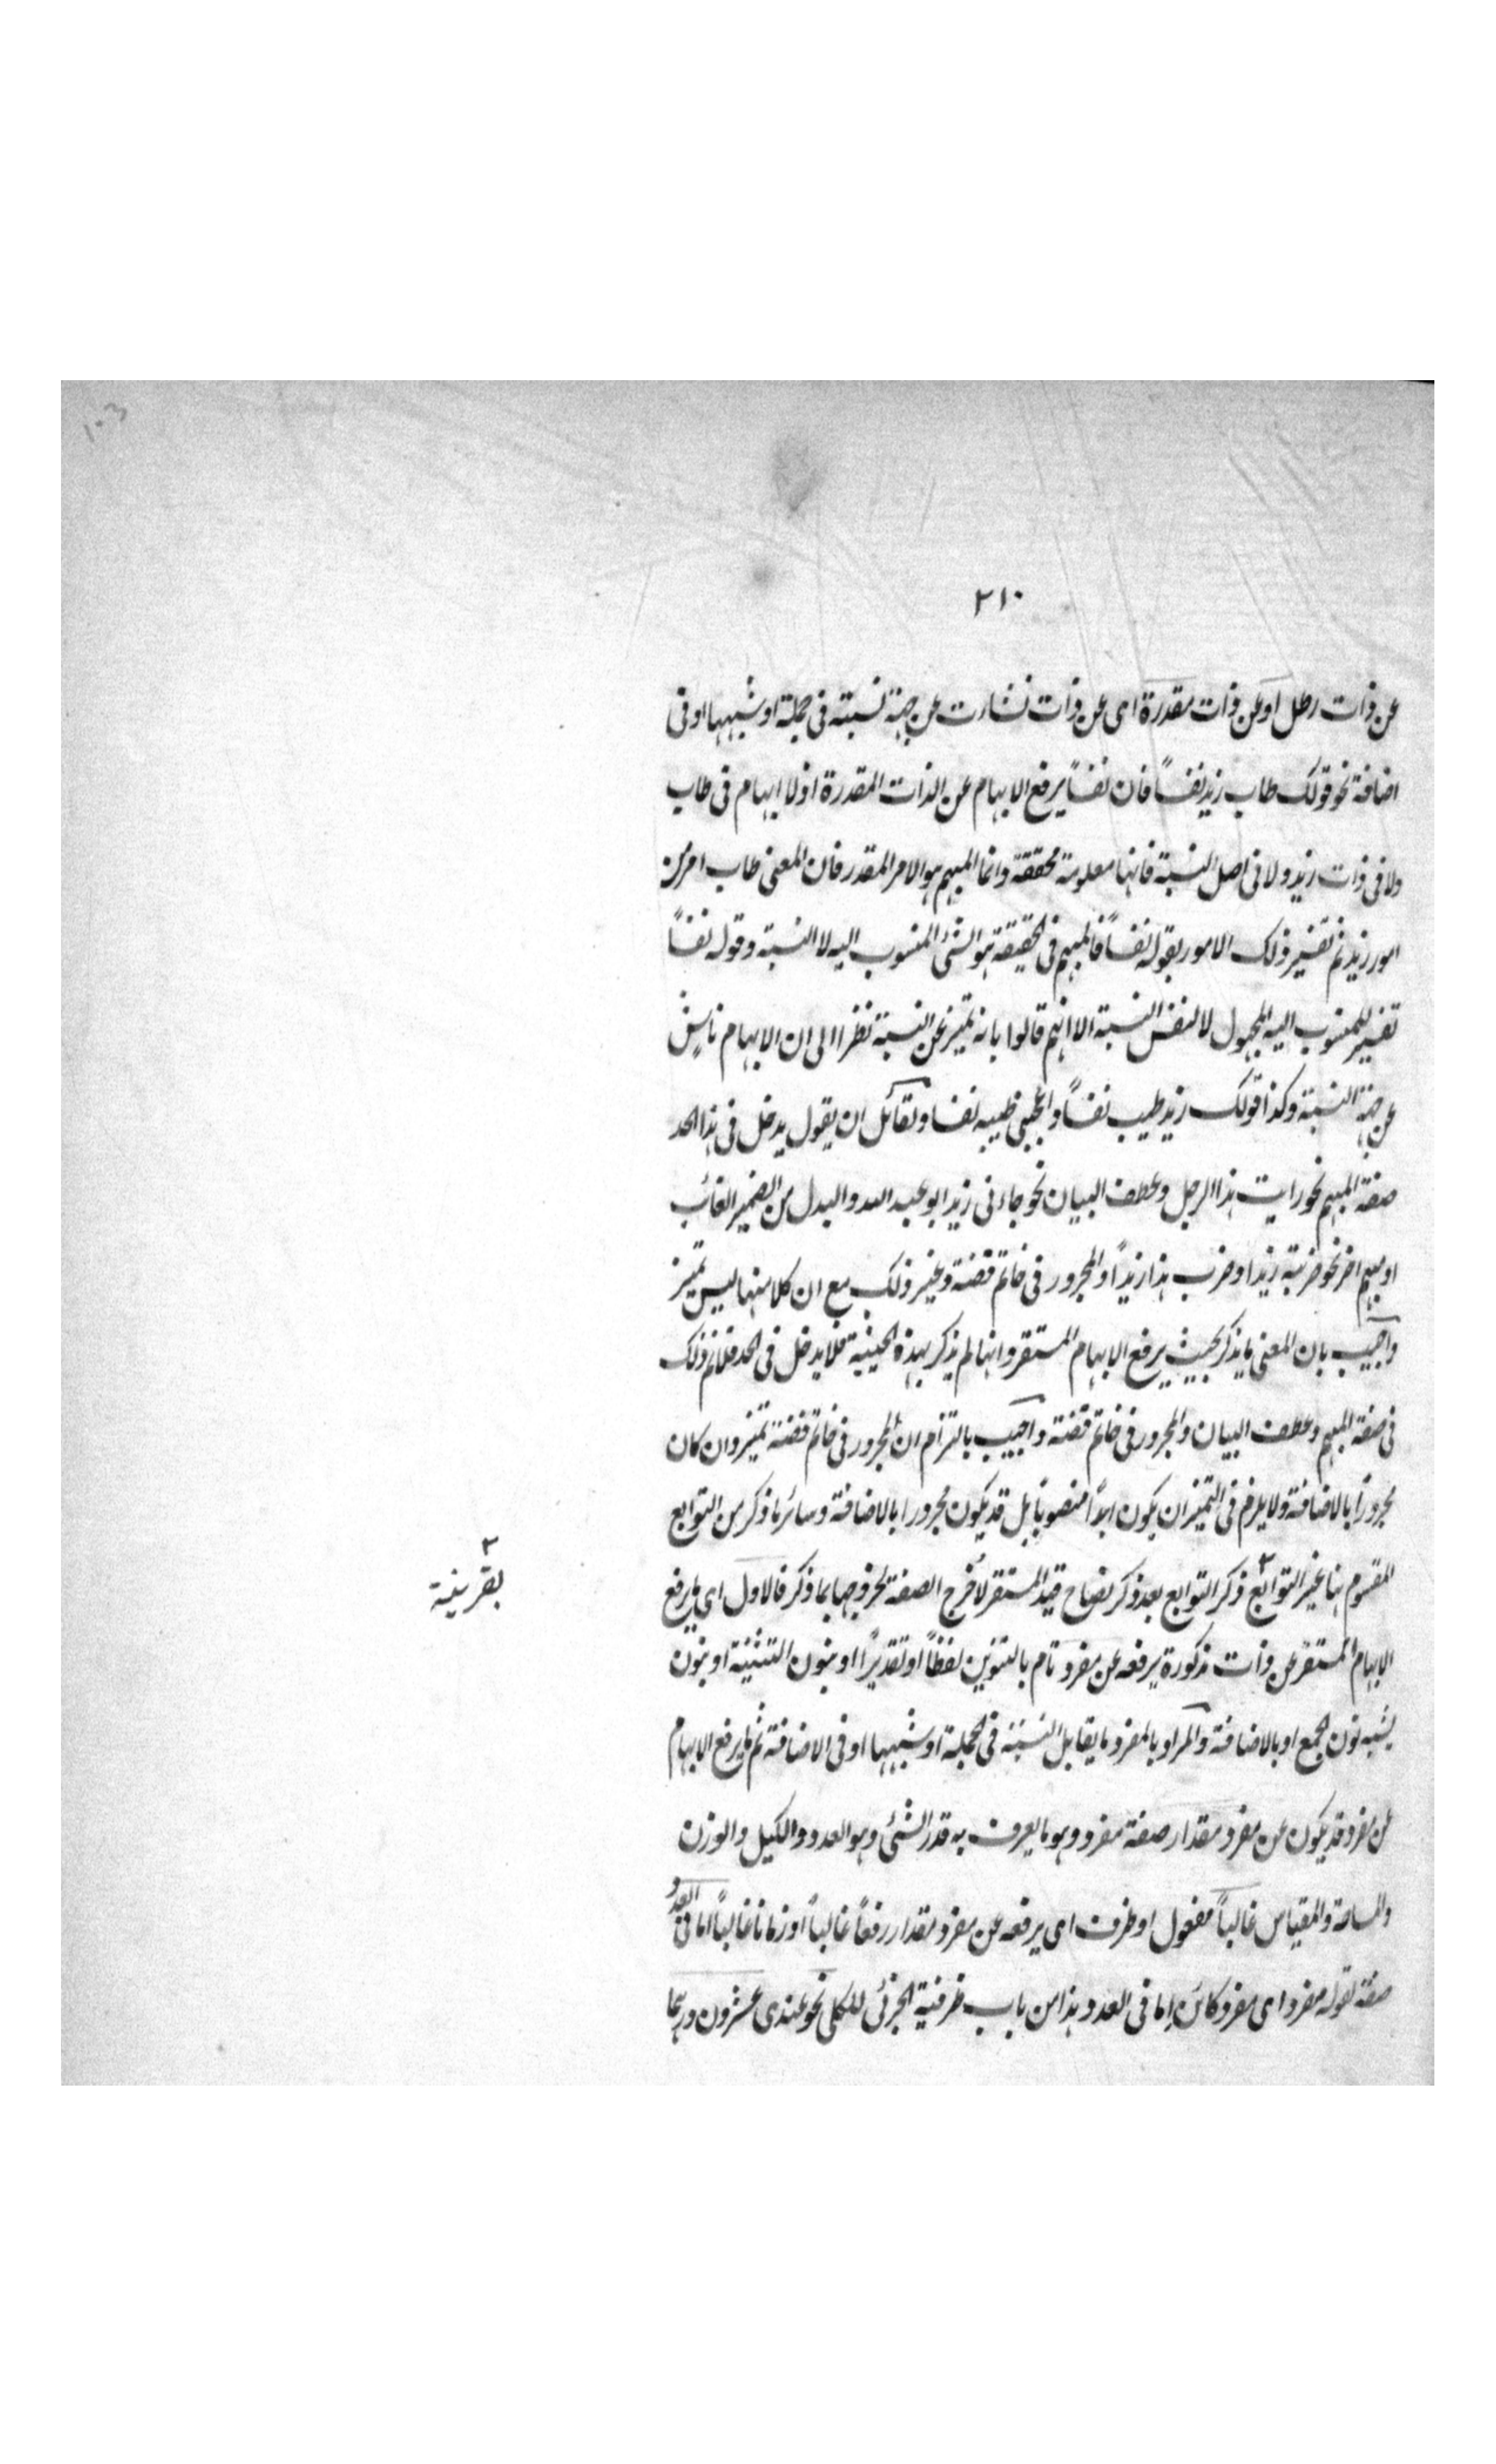 ٢١٠
عن ذات رطل او عن ذات مقدرة اى عن ذات نشات عن جهة نسبته فى جملة او شبهها او فى
اضافة نحو قولك طاب زيد نفساً فان نفساً يرفع الابهام عن الذات المقدرة اذ لا ابهام فى طاب
ولا فى ذات زيد ولا فى اصل النسبة فانها معلومة محققة وانما المبهم هو الامر المقدر فان المعنى طاب امر من
امور زيد ثم تفسير ذلك الامور بقوله نفساً فالمبهم فى الحقيقة هو الشئ المنسوب اليه لا النسبة وقوله نفساً
تفسير للمنسوب اليه المجهول لا لنفس النسبة الا انهم قالوا بانه تميز عن النسبة نظرا الى ان الابهام ناش
عن جهة النسبة وكذا قولك زيد طيب نفساً واعجبنى طيبه نفسا ولقائل ان يقول يدخل فى هذا الحد
صفة المبهم نحو رايت هذا الرجل وعطف البيان نحو جاءنى زيد ابو عبد الله والبدل من الضمير الغائب
او مبهم اخر نحو ضربته زيدا وضرب هذا زيداً والمجرور فى خاتم فضة وغير ذلك مع ان كلا منها ليس تميز
واجيب بان المعنى ما يذكر بحيث يرفع الابهام المستقر وانها لم يذكر بهذه الحيثية فلا يدخل فى الحد فلانم ذلك
فى صفة المبهم وعطف البيان والمجرور فى خاتم فضة واجيب بالتزام ان المجرور فى خاتم فضة تميز وان كان
مجروراً بالاضافة ولا يلزم فى التميز ان يكون ابداً منصوبا بل قد يكون مجرورا بالاضافة وسائر ما ذكر من التوابع
المقسوم هنا غير التوابع ٣ ذكر التوابع بعد ذكر قيد المستقر لأخرج الصفة لخروجها بما ذكر فالاول اى ما يرفع
٣
بقرينة
الابهام المستقر عن ذات مذكورة يرفعه عن مفرد تام بالتنوين لفظاً او تقديراً او بنون التثنية او بنون
يشبه نون الجمع او بالاضافة والمراد بالمفرد ما يقابل النسبة فى الجملة او شبهها او فى الاضافة ثم ما يرفع الابهام
عن مفرد قد يكون عن مفرد مقدار صفة مفرد وهو ما يعرف به قدر الشئ وهو العدد والكيل والوزن
والمساحة والمقياس غالباً مفعول او ظرف اى يرفعه عن مفرد مقدار رفعاً غالباً او زمانا غالباً اما فى العدد
صفة لقوله مفرد اى مفرد كائن اما فى العدد وهذا من باب ظرفية الجزئى للكلى نحو عندى عشرون درهما